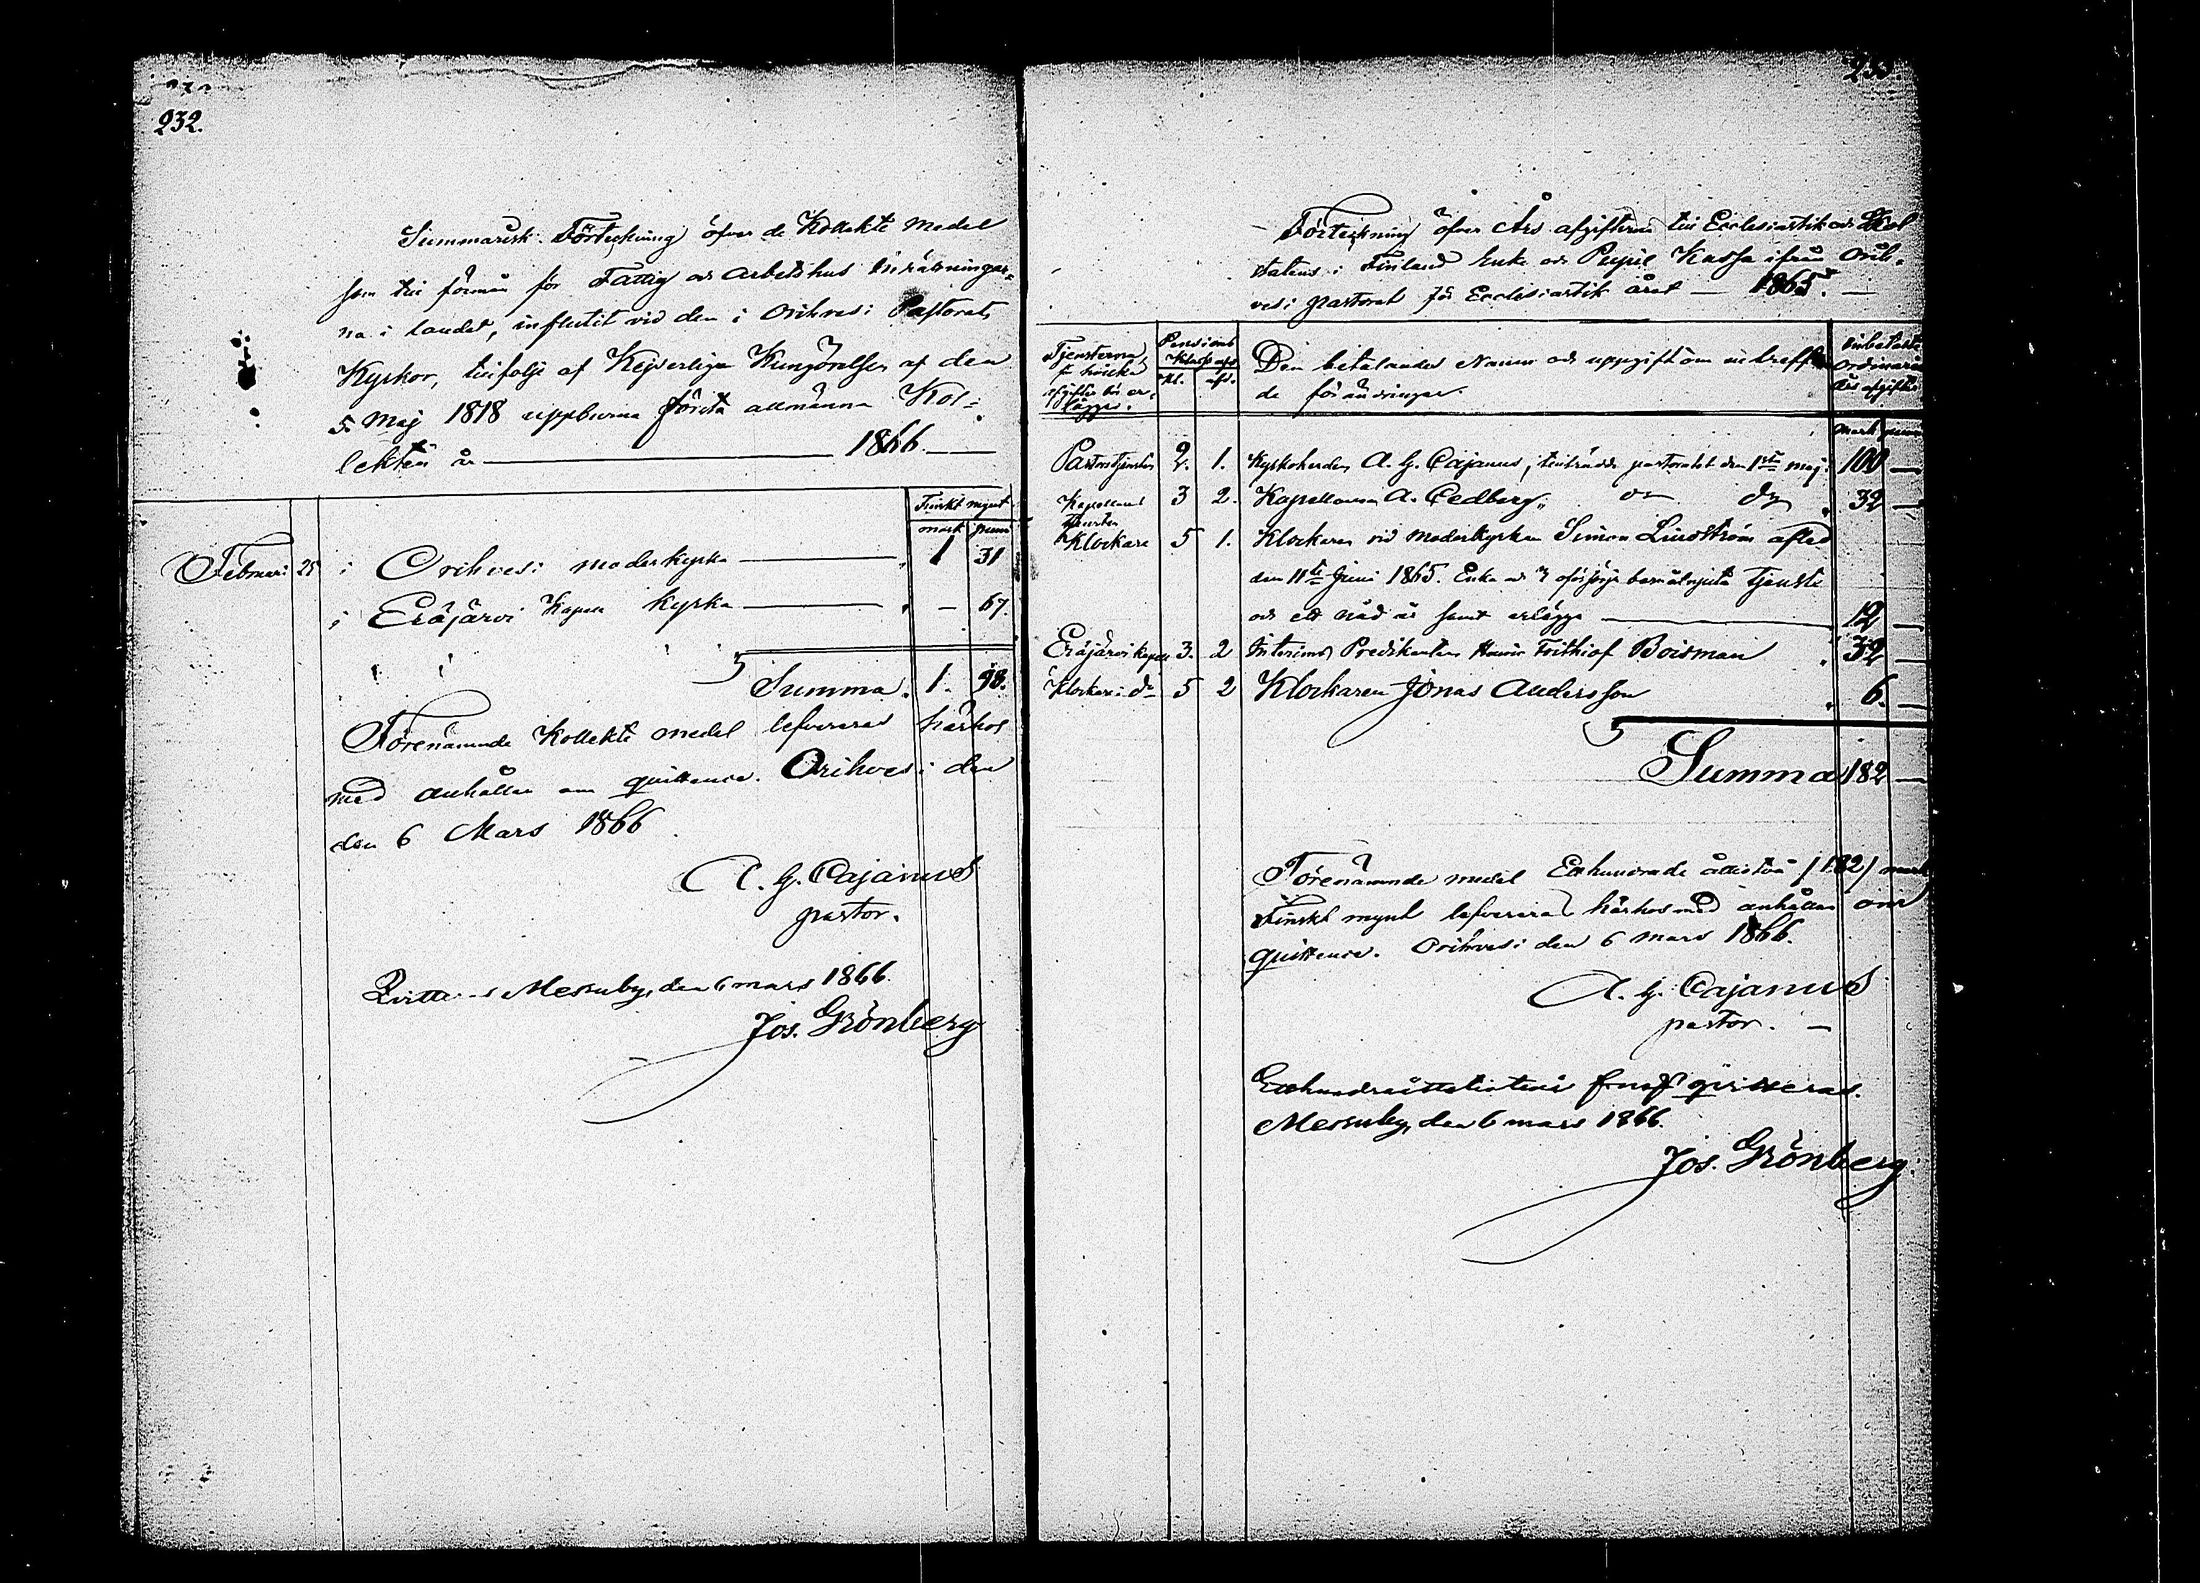 232.
Summarisk Förteckning öfver de Kollekt medel
som till förmån för Fattig och Arbetshus inrätningar-
na i landet, influtit vid den i Orihvesi Pastorats
Kyrkor, tillfölje af Kejserliga Kungörelsen af den
5 Maj 1818 uppburna första allmänna Kol-
lekten år — 1866. —
Finskt mynt
mark penni
Februari 25 i Orihvesi moderkyrka — " 1 31
i Eräjärvi Kapell kyrka — " — 67.
Summa. 1. 98.
Förenämnde Kollekt medel lefvereras härhos
med anhållan om quittence. Orihvesi den
den 6 Mars 1866
A. G. Cajanus
pastor.
Messuby, den 6 mars 1866.
Jos. Grönberg
233.
Förteckning öfver Års afgifterna till Ecclesiastik och Skol
statens i Finland Enke och Pupill Kassa ifrån Orih-
vesi pastorat för Ecclesiastik året — 1865. —
Tjensterna, för hvilka afgifter bör er-lägges.
Pensions Klass och afd.
Kl. afd.
Den betalandes Namn och uppgift om inträffa-
de förändringar.
Inbetalte ordinarie Års afgifter
mark penni
Pastorstjensten 2. 1. Kyrkoherden A. G. Cajanus, tillträdde pastoratet den 1ste maj 100 —
Kapellans tjensten 3 2. Kapellanen A. Cedberg " do do " 32 —
Klockare 5 1. Klockaren vid Moderkyrkan Simon Lindström afled
den 11te Juni 1865. Enka och 3 oförsörjda barn åtnjuta tjenste
och ett nåd år samt erlägga — 12 —
Eräjärvi kapell 3. 2 Interims Predikanten Henrik Frithiof Boisman " 32 —
Klockare i do 5 2 Klockaren Jonas Andersson " 6. —
Summa 182 —
Förenämnde medel Etthundrade åttitvå /182/ mark
Finskt mynt lefvereras härhos med anhållan om
quittence. Orihvesi den 6 mars 1866.
A. G. Cajanus
pastor. —
Etthundraåttatiotvå quitteras.
Messuby, den 6 mars 1866.
Jos. Grönberg.